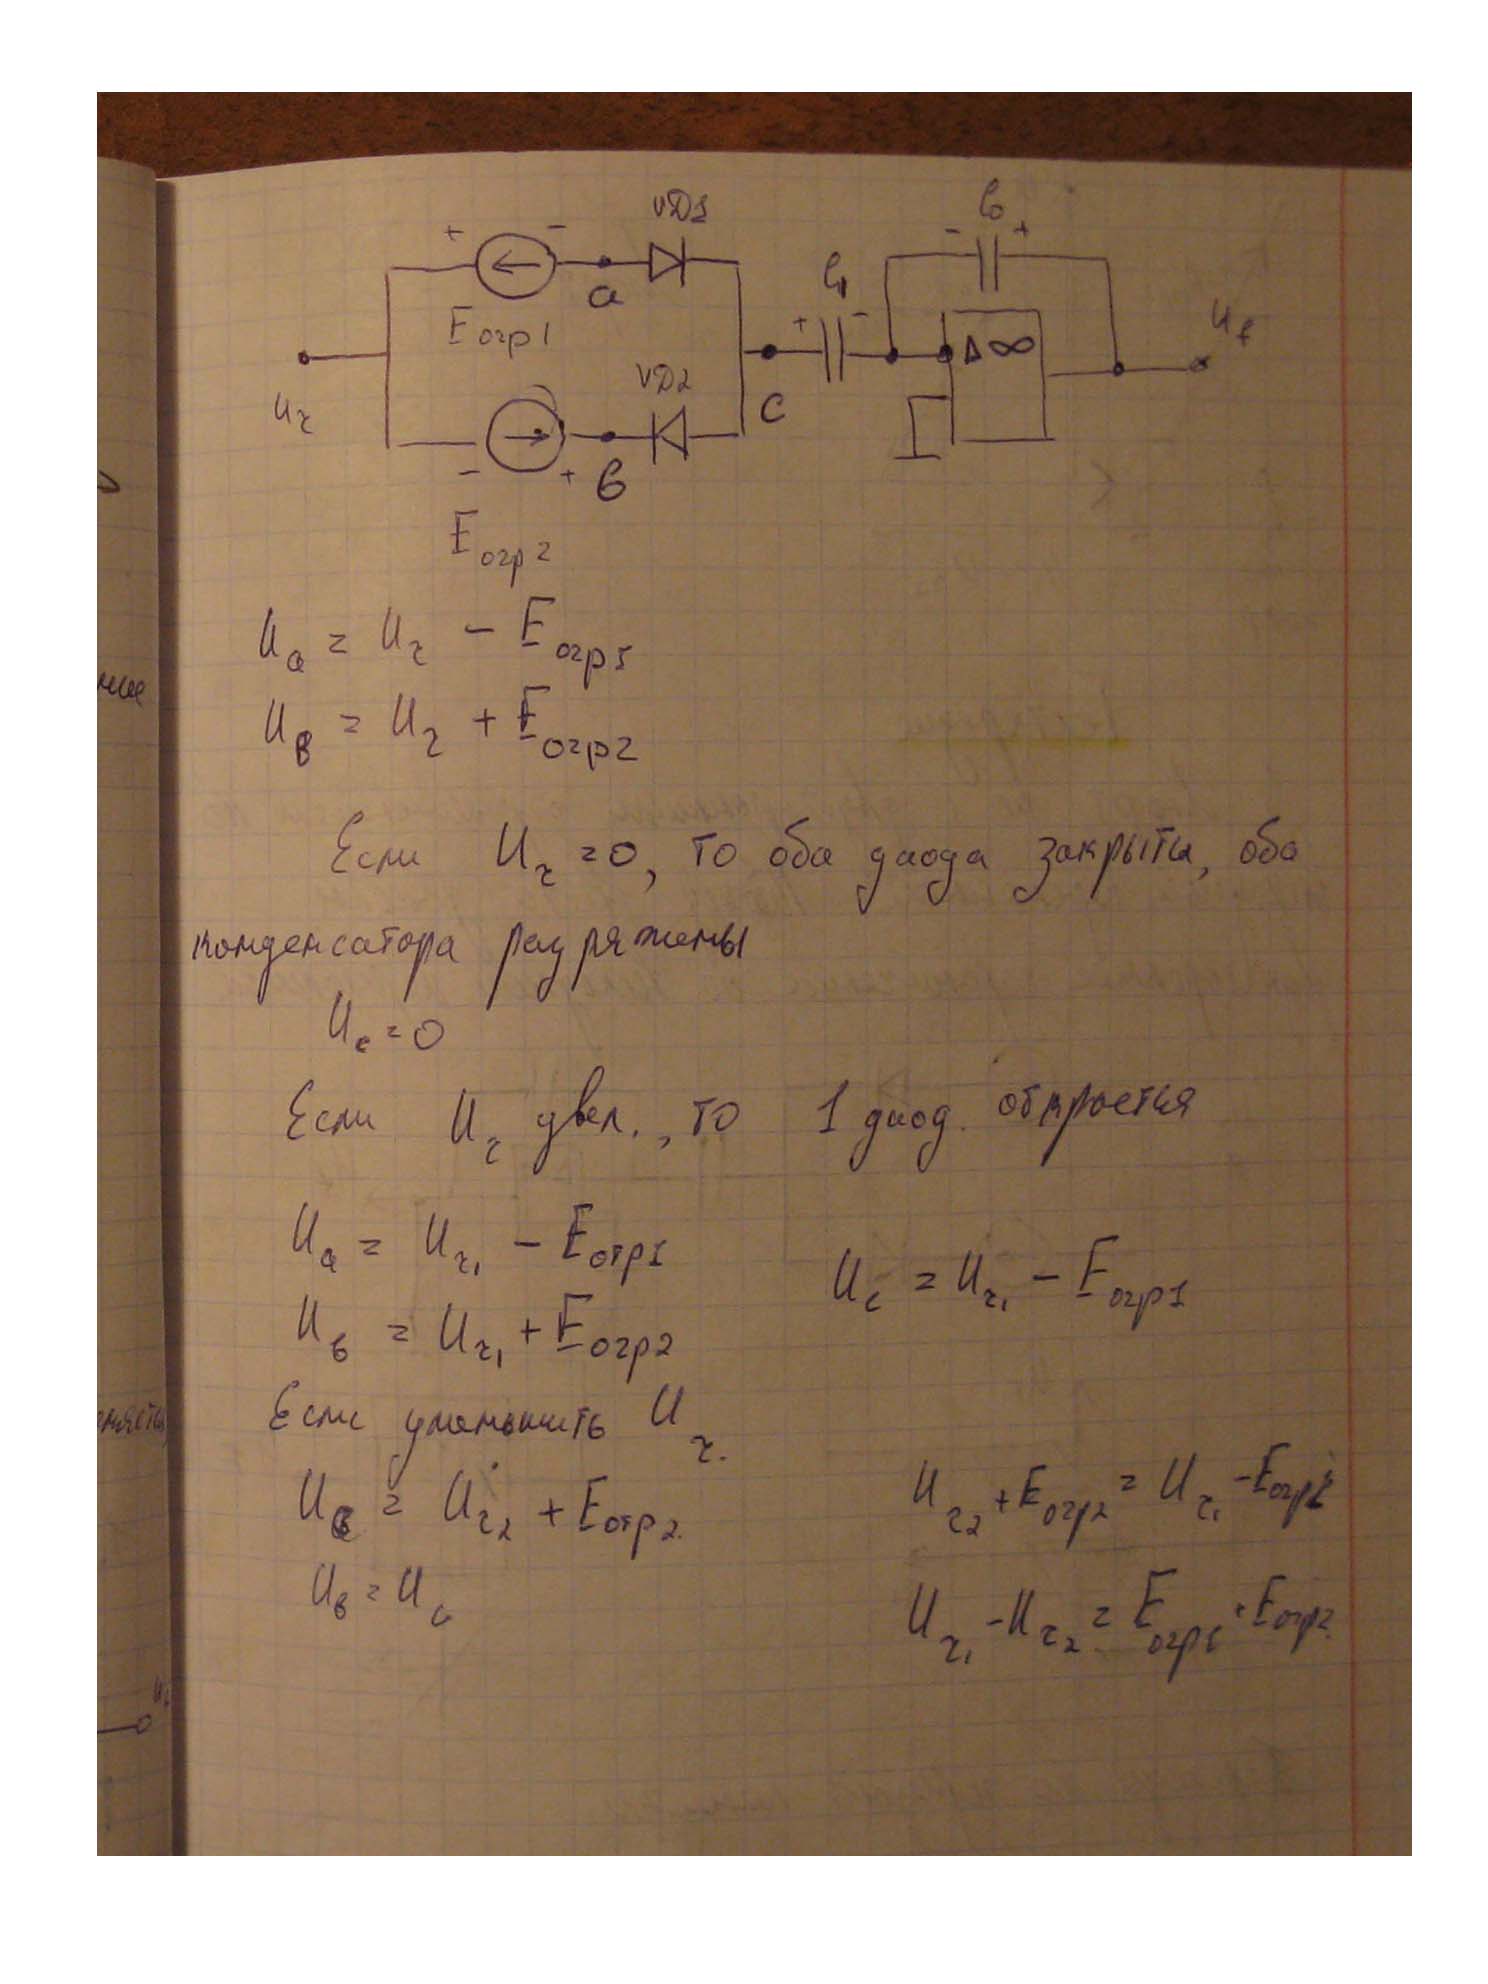 VD1
C₀
+ -
- +
a
C₁
+ -
Eогр1
Δ ∞
VD2
Uг
C
- +
в
Eогр2
Uа = Uг - Eогр1
Uв = Uг + Eогр2
Если Uг = 0, то оба диода закрыты, оба
конденсатора разряжены
Uс = 0
Если Uг увел., то 1 диод. откроется
Uа = Uг₁ - Eогр1
Uс = Uг₁ - Eогр1
Uв = Uг₁ + Eогр2
Если уменьшить Uг.
Uв = Uг₂ + Eогр2.
Uг₂ + Eогр2 = Uг₁ - Eогр1
Uв = Uс
Uг₁ - Uг₂ = Eогр1 + Eогр2.